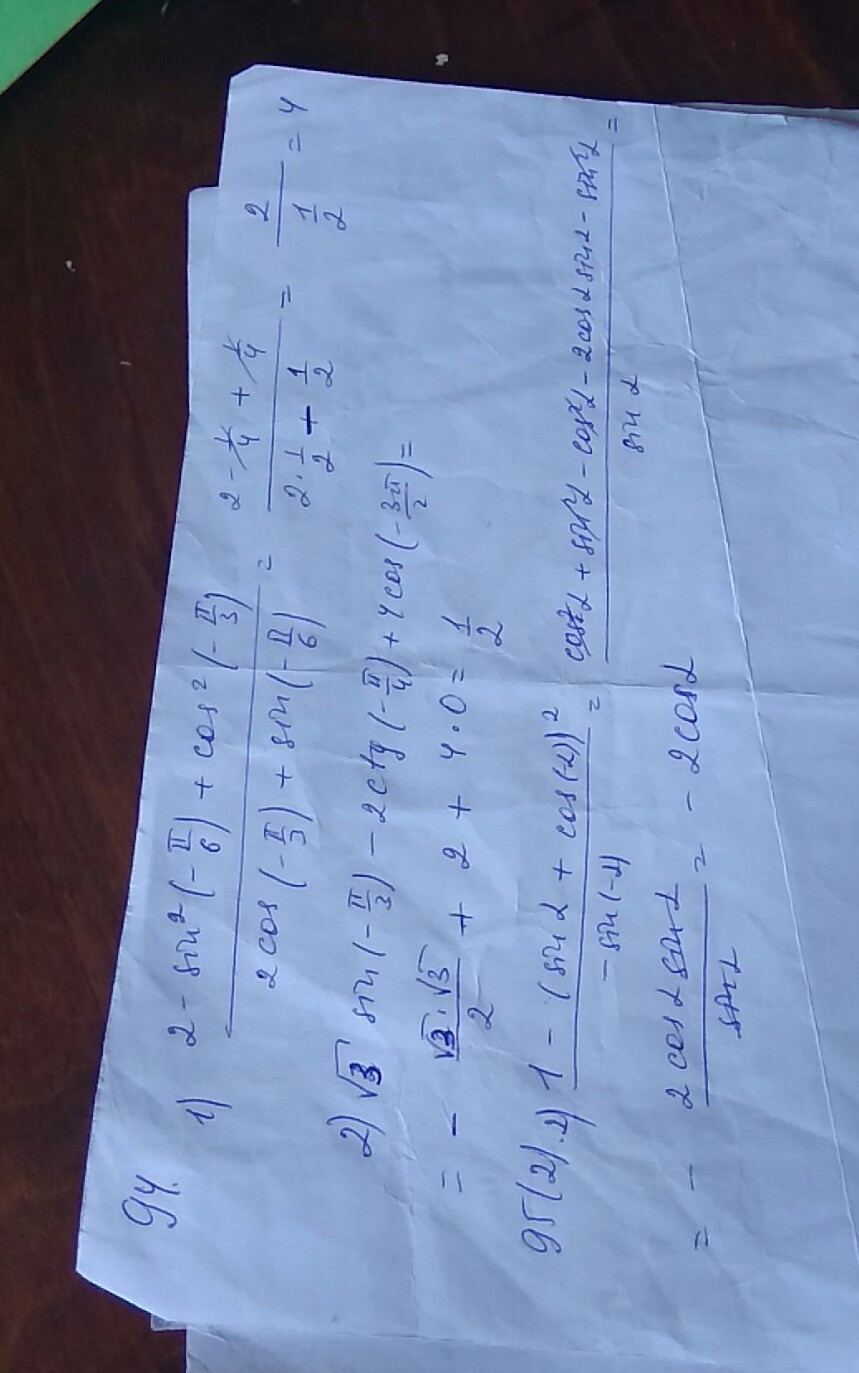 94.
1) (2 - sin²(-π/6) + cos²(-π/3)) / (2cos(-π/3) + sin(-π/6)) = (2 - 1/4 + 1/4) / (2·1/2 - 1/2) = 2 / (1/2) = 4
2) √3 sin(-π/3) - 2ctg(-π/4) + 4cos(-3π/2) =
= - (√3·√3)/2 + 2 + 4·0 = 1/2
95(2).2) (1 - (sin α + cos(-α))²) / (- sin(-α)) = (cos²α + sin²α - cos²α - 2cos α sin α - sin²α) / (sin α) =
= - (2cos α sin α) / (sin α) = - 2cos α